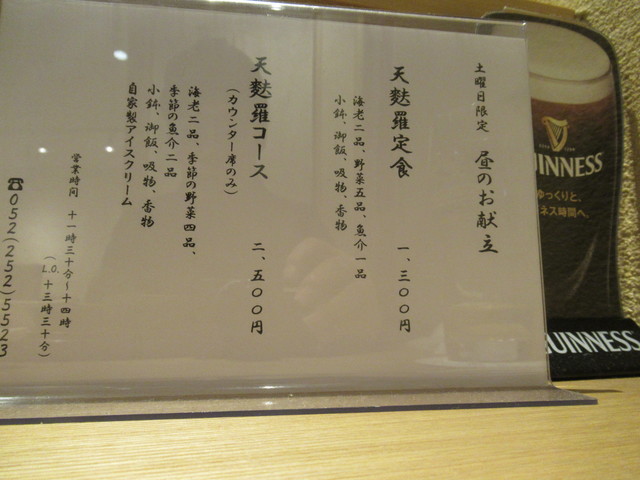 土曜日限定 昼のお献立
天麩羅定食 一、三〇〇円
海老二品、野菜五品、魚介一品
小鉢、御飯、吸物、香物
天麩羅コース 二、五〇〇円
(カウンター席のみ)
海老二品、季節の野菜四品、
季節の魚介二品
小鉢、御飯、吸物、香物
自家製アイスクリーム
営業時間 十一時三十分~十四時
(L.O. 十三時三十分)
☎052(252)5523
UINNESS
ゆっくりと、
ネス時間へ。
GUINNESS